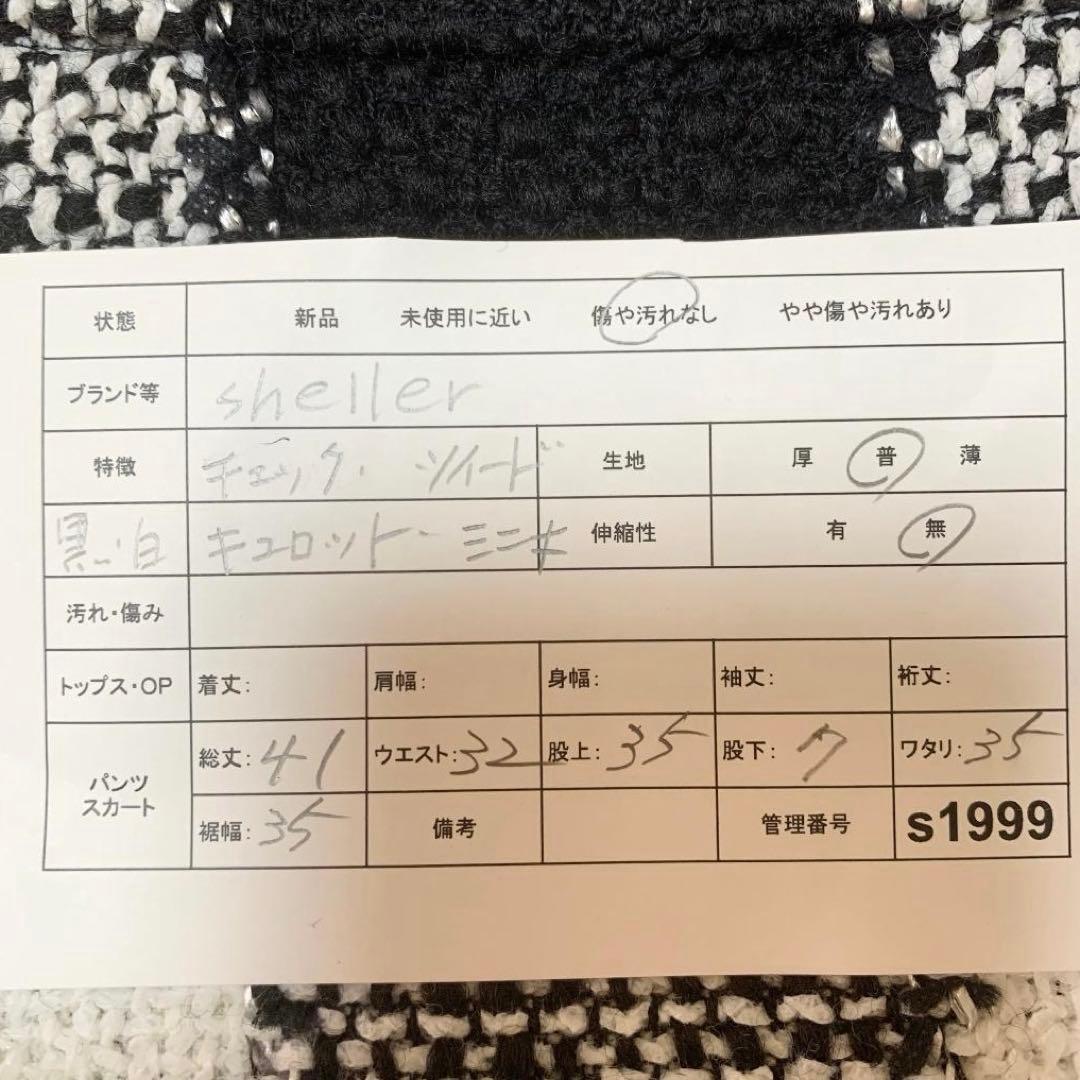 状態 新品 未使用に近い 傷や汚れなし やや傷や汚れあり
ブランド等 sheller
特徴 チェック・ ツイード 生地 厚 普 薄
黒・白 キュロット・ミニ丈 伸縮性 有 無
汚れ・傷み
トップス・OP 着丈: 肩幅: 身幅: 袖丈: 裄丈:
パンツ スカート 総丈: 41 ウエスト: 32 股上: 35 股下: 7 ワタリ: 35
裾幅: 35 備考 管理番号 s1999